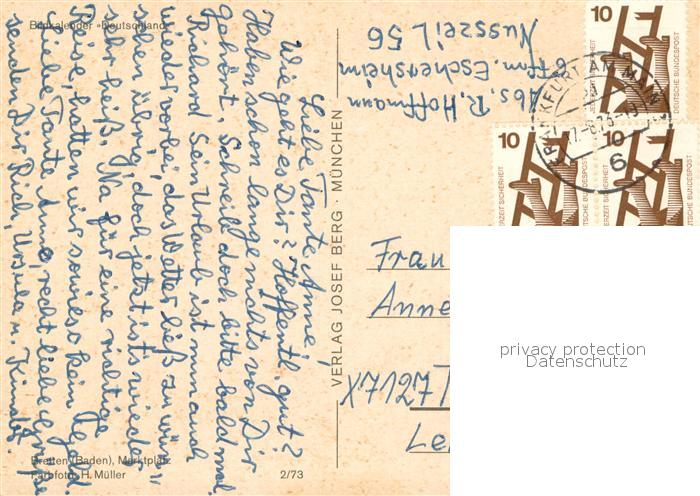 Bildkalender »Deutschland«
Liebe Tante Anne,
Wie geht es Dir? Hoffentl. gut?
Haben schon lange nichts von Dir
gehört. Schreib doch bitte bald mal.
Richard sein Urlaub ist nun auch
wieder vorbei, das Wetter ließ zu wün-
schen übrig, doch jetzt ist's wieder
sehr heiß. Na für eine richtige
Reise hatten wir sowieso kein Geld.
Liebe Tante Anna, recht liebe Grüße
senden Dir Rich, Ursula u. Kinder.
Bretten (Baden), Marktplatz
Farbfoto: H. Müller
2/73
VERLAG JOSEF BERG · MÜNCHEN
Abs. R. Hoffmann
6 Ffm. Eschersheim
Nusszeil 56
10
DEUTSCHE BUNDESPOST
10
JEDERZEIT SICHERHEIT
10
JEDERZEIT SICHERHEIT
DEUTSCHE BUNDESPOST
FRANKFURT AM MAIN
6
Frau
Anne
X7127
privacy protection
Datenschutz